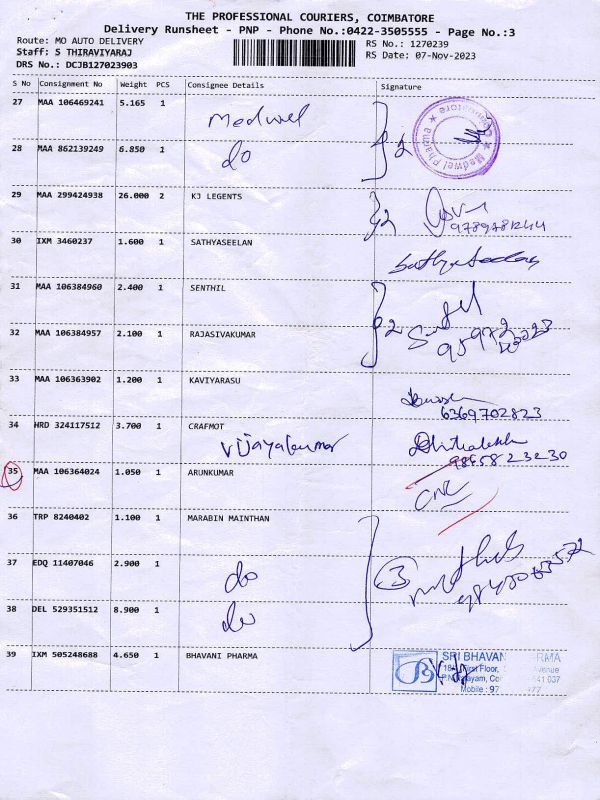 THE PROFESSIONAL COURIERS, COIMBATORE
Delivery Runsheet - PNP - Phone No.:0422-3505555 - Page No.:3
Route: MO AUTO DELIVERY
Staff: S THIRAVIYARAJ
DRS No.: DCJB127023903
RS No.: 1270239
RS Date: 07-Nov-2023
S No Consignment No Weight PCS Consignee Details Signature
27 MAA 106469241 5.165 1 Medwel
28 MAA 862139249 6.850 1 do
2
Medwel Pharma
29 MAA 299424938 26.000 2 KJ LEGENTS 2
30 IXM 3460237 1.600 1 SATHYASEELAN Sathyaseelan
31 MAA 106384960 2.400 1 SENTHIL
32 MAA 106384957 2.100 1 RAJASIVAKUMAR
2
33 MAA 106363902 1.200 1 KAVIYARASU
6369702823
34 HRD 324117512 3.700 1 CRAFMOT
Vijayakumar
35 MAA 106364024 1.050 1 ARUNKUMAR
CNC
36 TRP 8240402 1.100 1 MARABIN MAINTHAN
37 EDQ 11407046 2.900 1 do
3
38 DEL 529351512 8.900 1 do
39 IXM 505248688 4.650 1 BHAVANI PHARMA
SRI BHAVAN
First Floor, Avenue
641 037
Mobile : 97